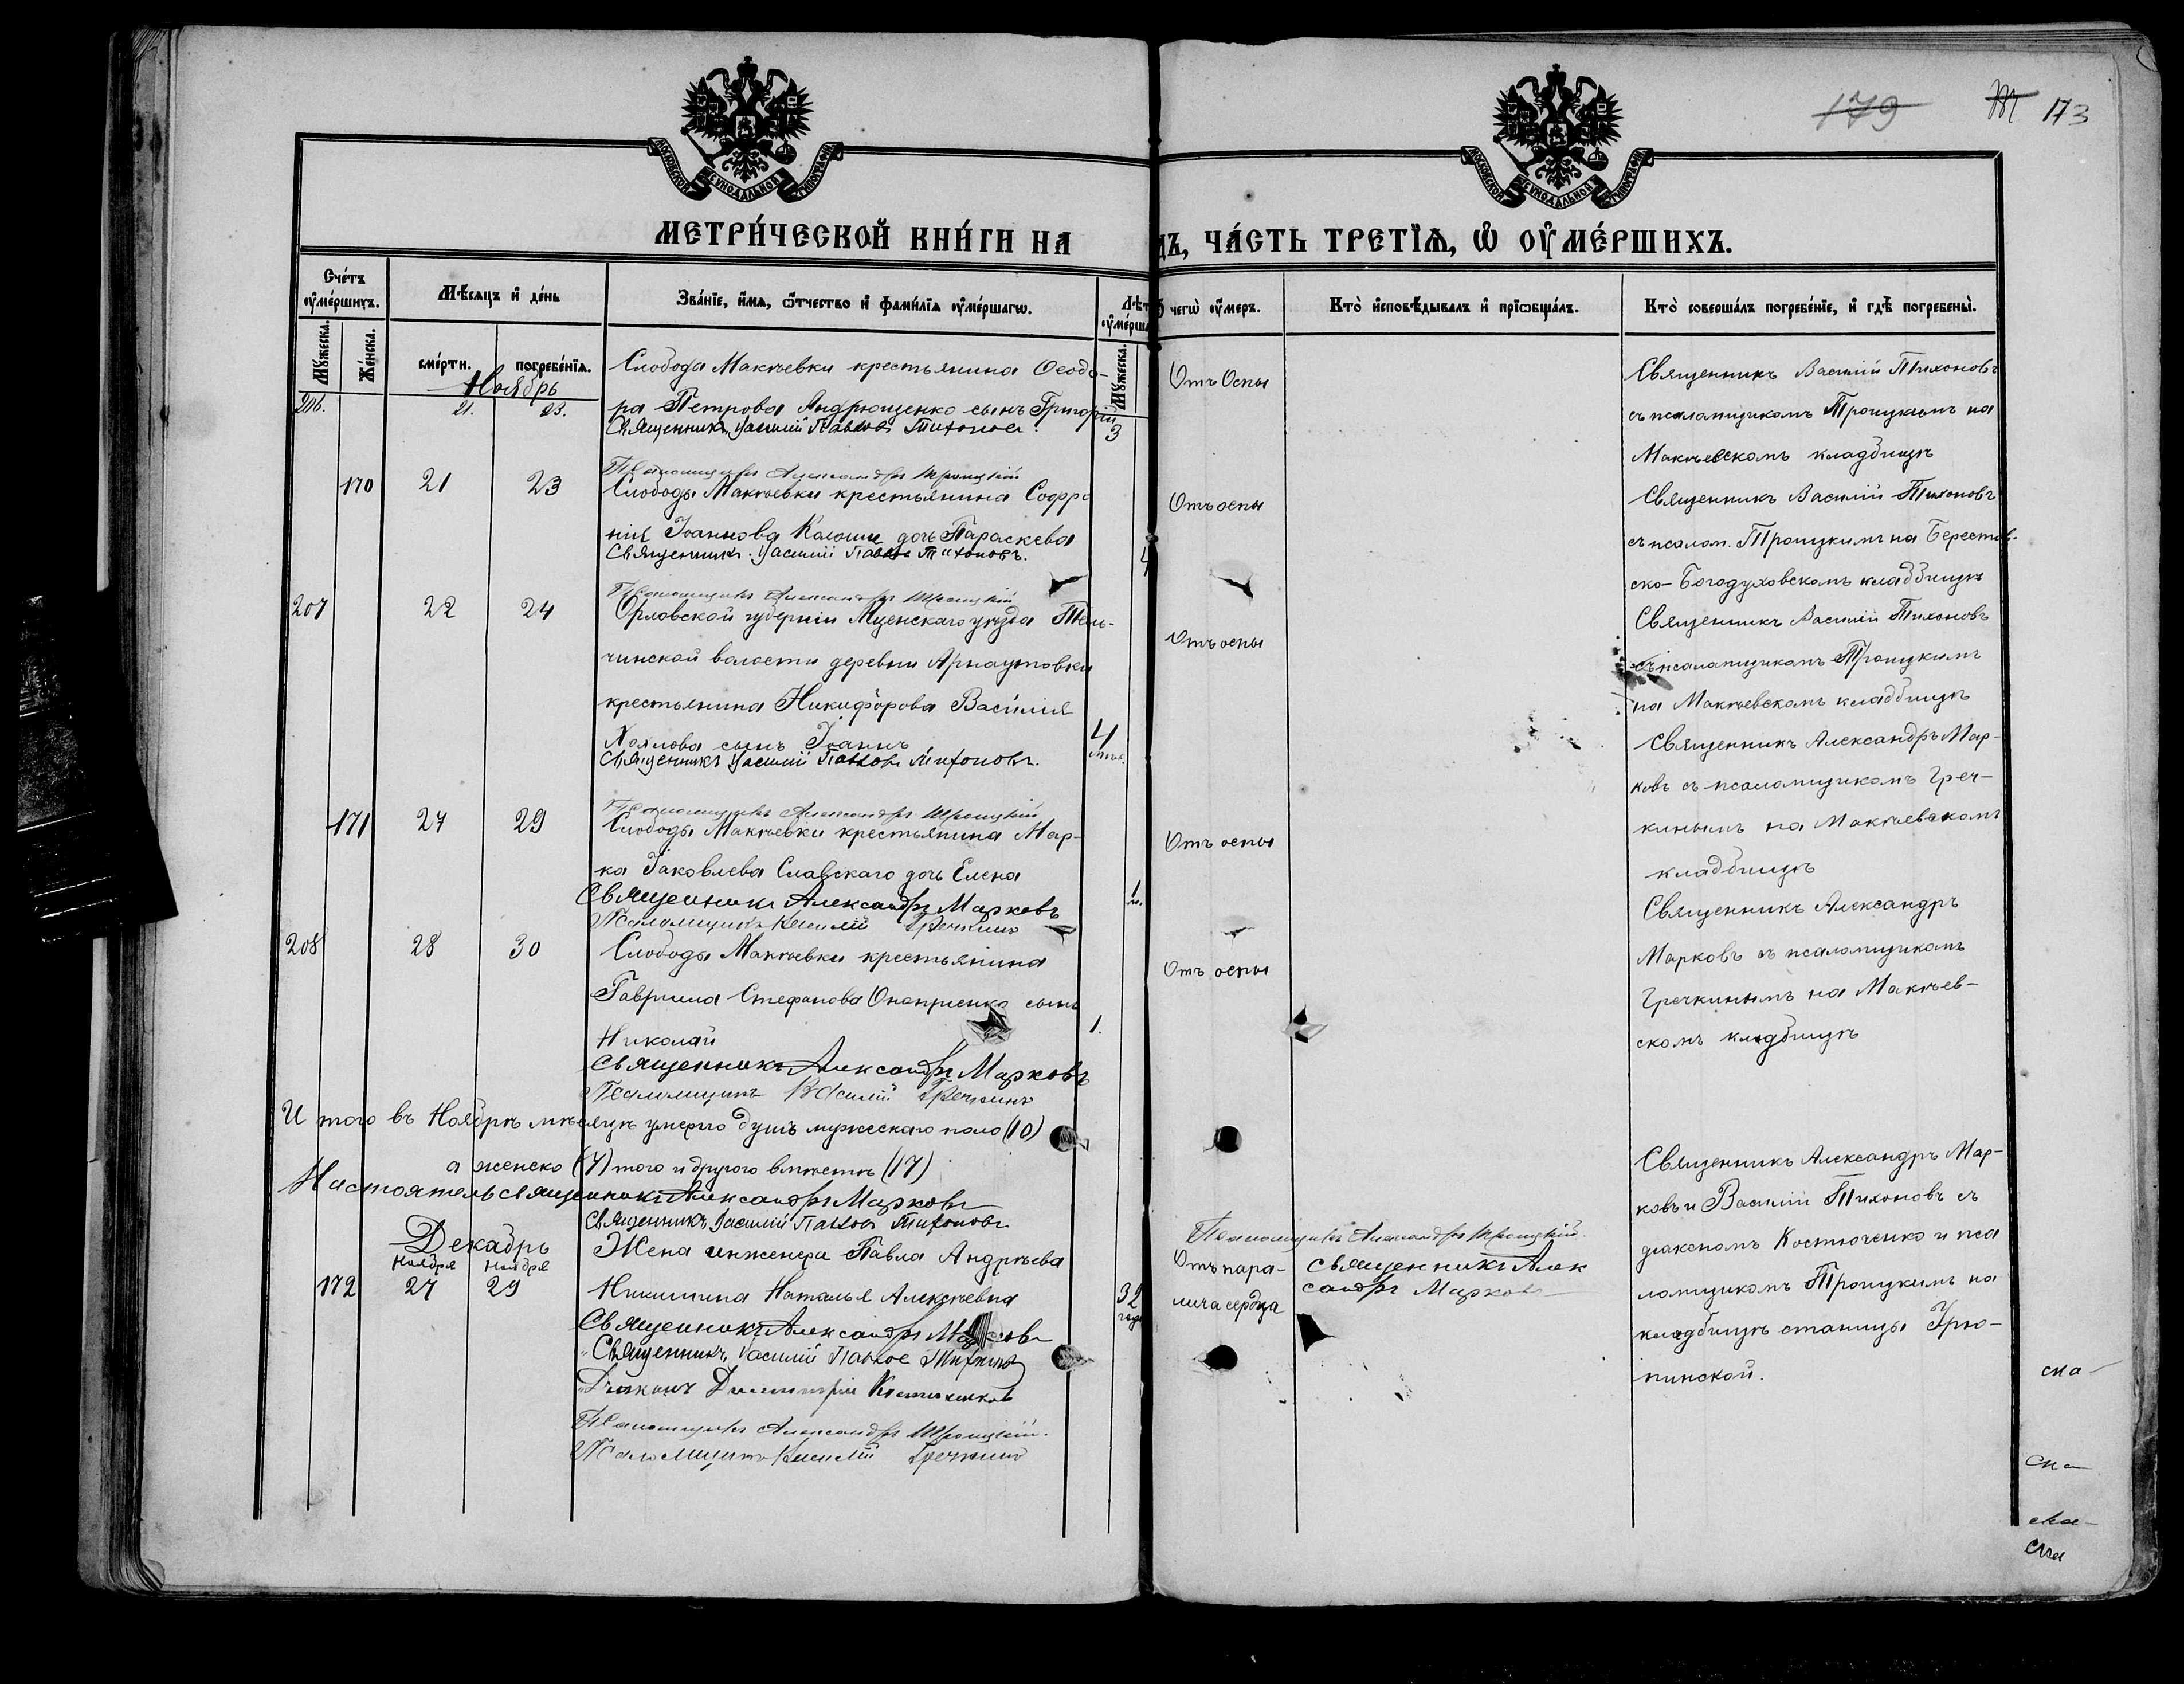 179 173
МОСКОВСКОЙ СѴНОДАЛЬНОЙ ТИПОГРАФІИ
МОСКОВСКОЙ СѴНОДАЛЬНОЙ ТИПОГРАФІИ
МЕТРИ́ЧЕСКОЙ КНИ́ГИ НА
ДЪ, ЧА́СТЬ ТРЕТІѦ, Ѽ ОУ҆МЕ́РШИХЪ.
Сче́тъ оу҆ме́ршихъ.
Мꙋжеска.
Же́нска.
Мѣсѧцъ и҆ де́нь
сме́рти.
погребе́нїѧ.
Зва́нїе, и҆́мѧ, ѻ҆́тчество и҆ фами́лїѧ оу҆ме́ршагѡ.
Лѣт
оу҆ме́рша
Мꙋжеска.
чегѡ̀ оу҆́меръ.
Кто̀ и҆сповѣ́дывалъ и҆ прїѡбща́лъ.
Кто̀ соверша́лъ погребе́нїе, и҆ гдѣ̀ погребены̀.
Ноябрь
206. 21. 23.
Слобода Макѣевки крестьянина Ѳеодо-
ра Петрова Андрющенко сынъ Григорій
3
Священникъ Василій Павловъ Тихоновъ.
Псаломщикъ Александръ Троицкій
Отъ Оспы
Священникъ Василій Тихоновъ
съ псаломщикомъ Троицкимъ на
Макѣевскомъ кладбищѣ
170 21 23
Слободы Макѣевки крестьянина Софро
нія Іоаннова Калоши дочь Параскева
4
Священникъ Василій Павловъ Тихоновъ.
Псаломщикъ Александръ Троицкій
Отъ оспы
Священникъ Василій Тихоновъ
съ псалом. Троицкимъ на Берестов.
ско-Богодуховскомъ кладбищѣ
207 22 24
Орловской губерніи Мценскаго уѣзда Тель-
чинской волости деревни Арнаутовки
крестьянина Никифорова Василія
сынъ Іоаннъ
4
Священникъ Василій Павловъ Тихоновъ.
Псаломщикъ Александръ Троицкій
Отъ оспы
Священникъ Василій Тихоновъ
съ псаломщикомъ Троицкимъ
на Макѣевскомъ кладбищѣ
171 27 29
Слободы Макѣевки крестьянина Мар-
ка Іаковлева Славскаго дочь Елена
1
м.
Священникъ Александръ Марковъ
Псаломщикъ Василій Гречкинъ
Отъ оспы
Священникъ Александръ Мар-
ковъ съ псаломщикомъ Греч-
кинымъ на Макѣевскомъ
кладбищѣ
208 28 30
Слободы Макѣевки крестьянина
Гавриила Стефанова Онаприенко сынъ
Николай
1.
Священникъ Александръ Марковъ
Псаломщикъ Василій Гречкинъ
Отъ оспы
Священникъ Александръ
Марковъ съ псаломщикомъ
Гречкинымъ на Макѣев-
скомъ кладбищѣ
И того въ Ноябрѣ мѣсяцѣ умерло душъ мужескаго поло (10)
а женско (7) того и другого вмѣстѣ (17)
Настоятель священникъ Александръ Марковъ
Священникъ Василій Павловъ Тихоновъ
Псаломщикъ Александръ Троицкій.
Декабрь
Ноября Ноября
172 27 29
Жена инженера Павла Андрѣева
Никитина Наталья Алексѣевна
32
года
Священникъ Александръ Марковъ
Священникъ Василій Павлов Тихонов
Диаконъ Димитрій
Псаломщикъ Александръ Троицкій.
Псаломщикъ Василій Гречкинъ
Отъ пара-
лича сердца
Священникъ Алек
сандръ Марковъ
Священникъ Александръ Мар-
ковъ и Василій Тихоновъ съ
діакономъ Костюченко и пса
ломщикомъ Троицкимъ на
кладбищѣ станицы Урю-
пинской.
ска-